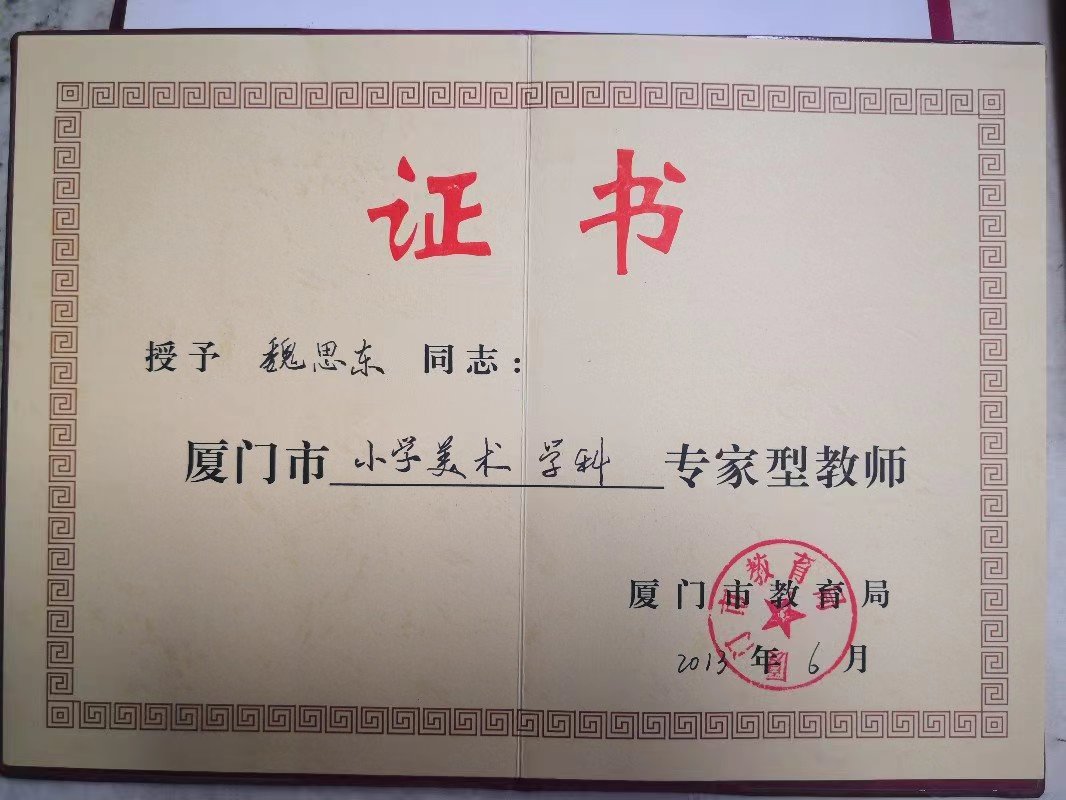 证书
授予 魏思东 同志：
厦门市 小学美术 学科 专家型教师
厦门市教育局
厦门市教育局
2013年6月